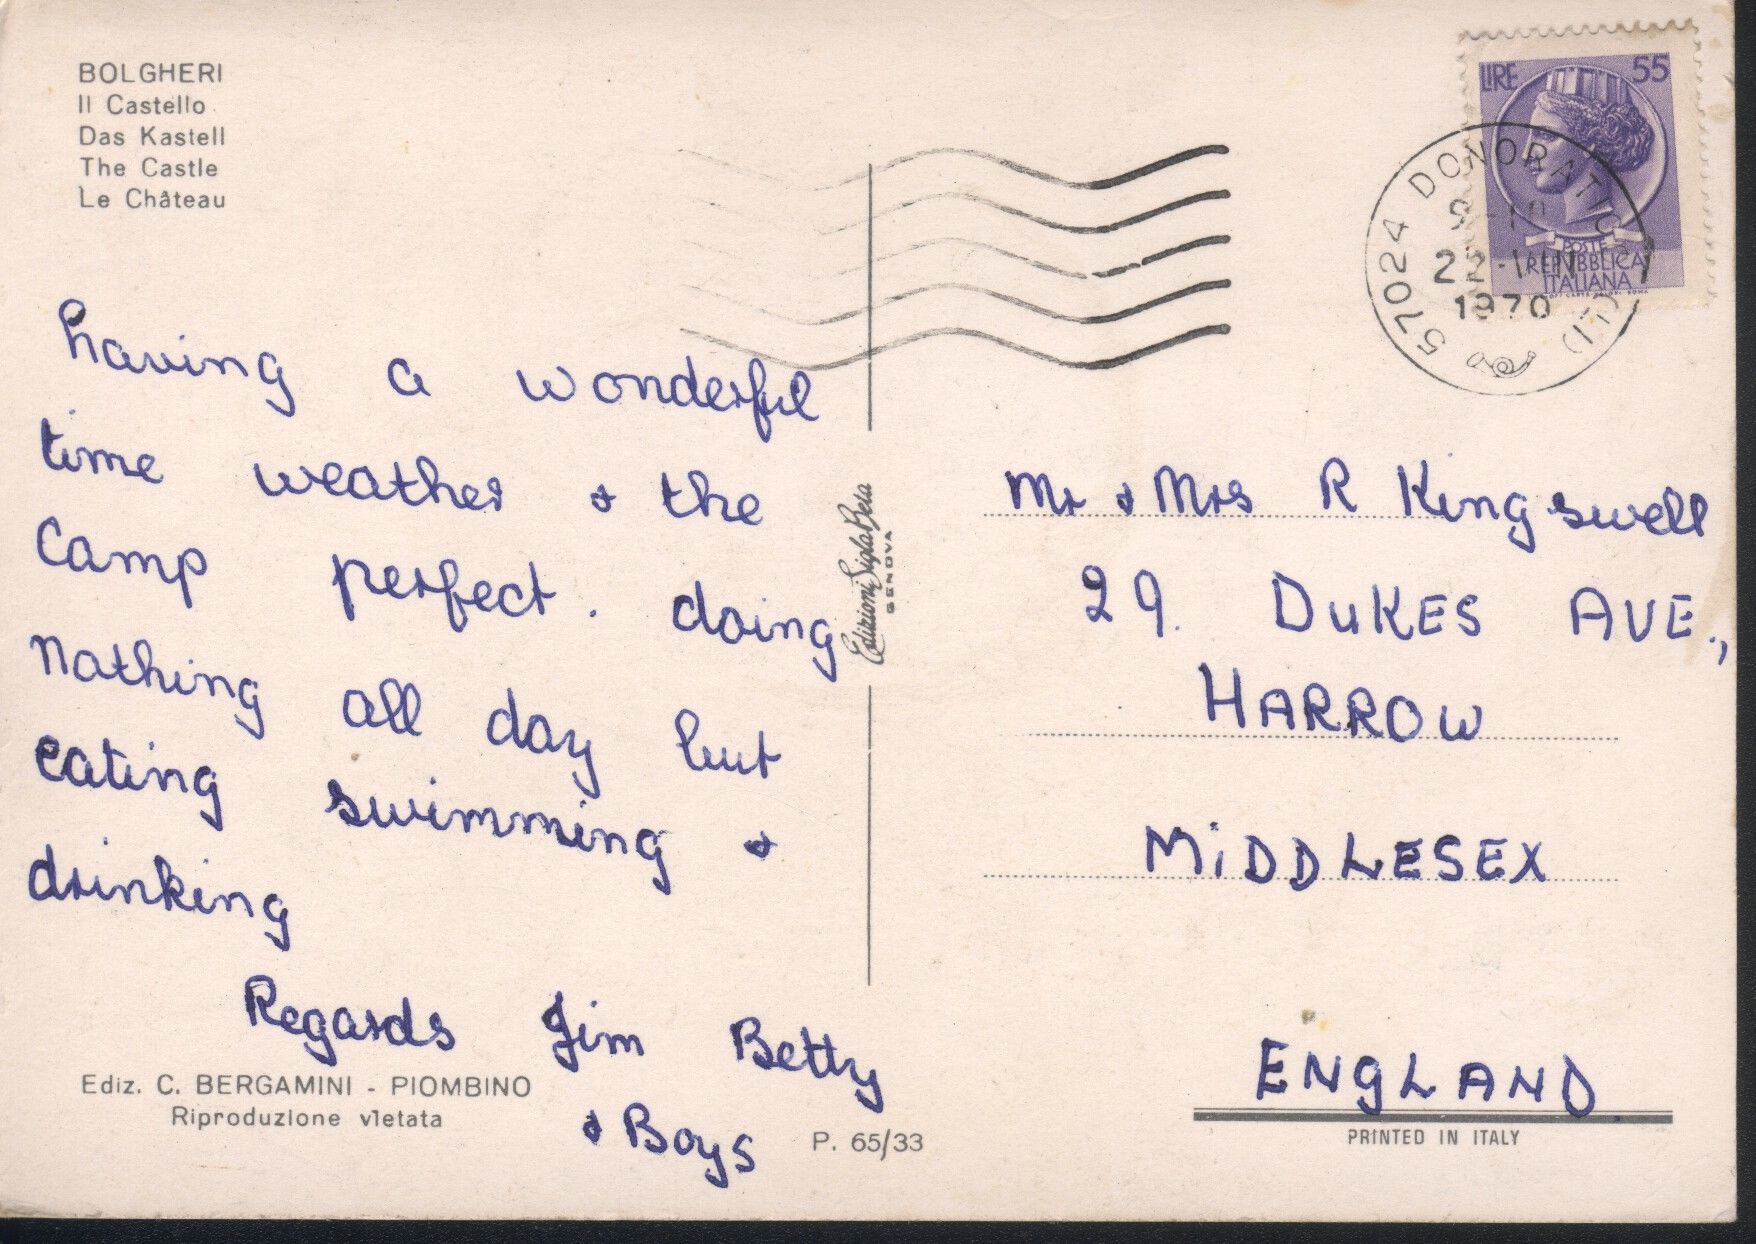 BOLGHERI
Il Castello
Das Kastell
The Castle
Le Château
having a wonderful
time weather & the
Camp perfect. doing
nothing all day but
eating swimming &
drinking
Regards Jim Betty
& Boys
Ediz. C. BERGAMINI - PIOMBINO
Riproduzione vietata
P. 65/33
Edizioni Sigla Beta
GENOVA
LIRE 55
POSTE
REPUBBLICA
ITALIANA
57024 DONORATICO (LI)
22-
1970
Mr & Mrs R Kingswell
29. DUKES AVE.,
HARROW
MIDDLESEX
ENGLAND
PRINTED IN ITALY